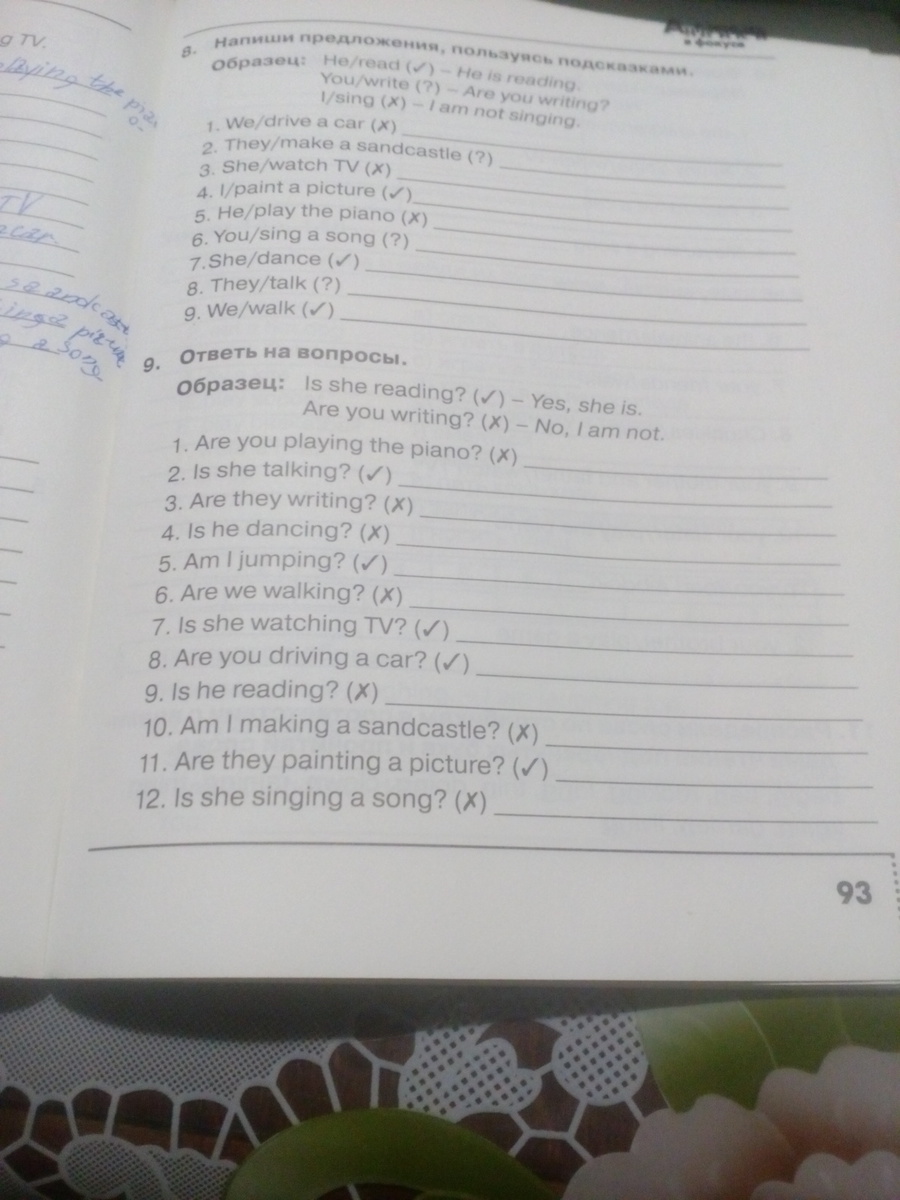 g TV.
playing the
в фокусе
8. Напиши предложения, пользуясь подсказками.
Образец: He/read (✓) – He is reading.
You/write (?) – Are you writing?
I/sing (✗) – I am not singing.
1. We/drive a car (✗)
2. They/make a sandcastle (?)
3. She/watch TV (✗)
4. I/paint a picture (✓)
5. He/play the piano (✗)
6. You/sing a song (?)
7.She/dance (✓)
8. They/talk (?)
9. We/walk (✓)
TV
car.
a song
9. Ответь на вопросы.
Образец: Is she reading? (✓) – Yes, she is.
Are you writing? (✗) – No, I am not.
1. Are you playing the piano? (✗)
2. Is she talking? (✓)
3. Are they writing? (✗)
4. Is he dancing? (✗)
5. Am I jumping? (✓)
6. Are we walking? (✗)
7. Is she watching TV? (✓)
8. Are you driving a car? (✓)
9. Is he reading? (✗)
10. Am I making a sandcastle? (✗)
11. Are they painting a picture? (✓)
12. Is she singing a song? (✗)
93